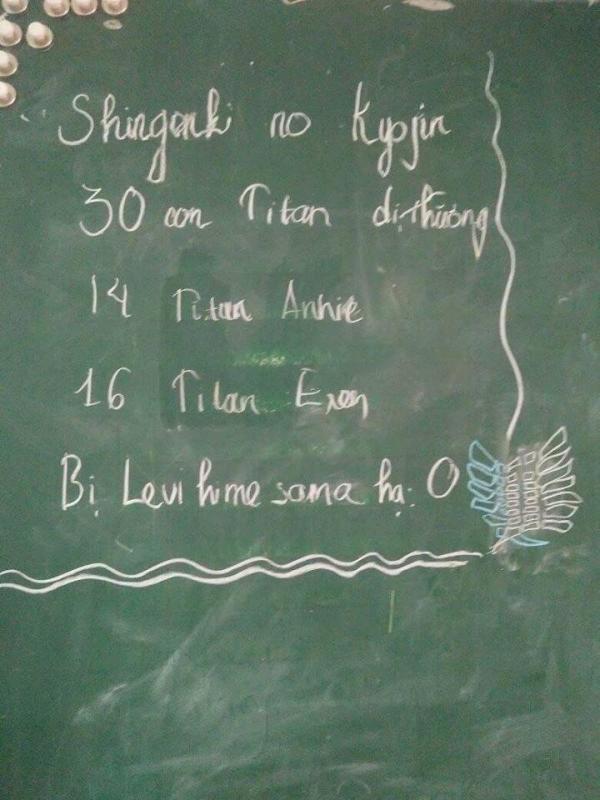 Shingenki no Kyojin
30 con Titan dị thường
14 Titan Annie
16 Titan Eren
Bị Levi hime sama hạ: 0